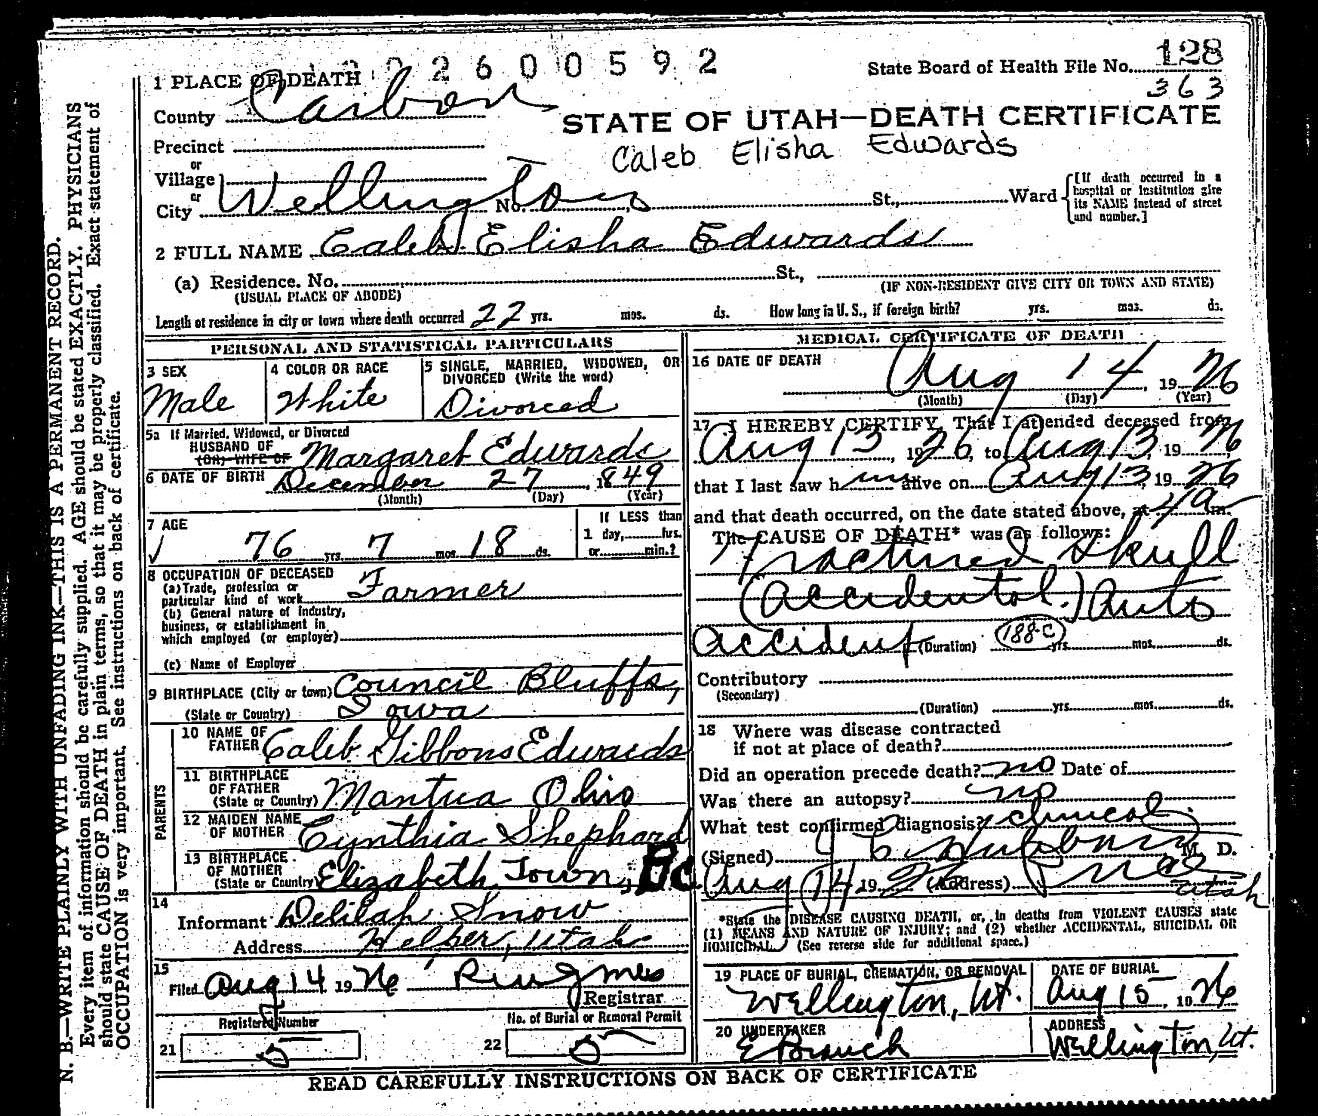 2 6 0 0 5 9 2
State Board of Health File No. 128
363
1 PLACE OF DEATH
County Carbon
STATE OF UTAH—DEATH CERTIFICATE
Caleb Elisha Edwards
Precinct
or
Village
or
City Wellington No. St., Ward
[If death occurred in a
hospital or institution give
its NAME instead of street
and number.]
2 FULL NAME Caleb Elisha Edwards
(a) Residence. No. St.,
(USUAL PLACE OF ABODE) (IF NON-RESIDENT GIVE CITY OR TOWN AND STATE)
Length of residence in city or town where death occurred 22 yrs. mos. ds. How long in U. S., if foreign birth? yrs. mos. ds.
PERSONAL AND STATISTICAL PARTICULARS
3 SEX
Male
4 COLOR OR RACE
White
5 SINGLE, MARRIED, WIDOWED, OR
DIVORCED (Write the word)
Divorced
5a If Married, Widowed, or Divorced
HUSBAND OF
(OR) WIFE OF Margaret Edwards
6 DATE OF BIRTH December 27, 1849
(Month) (Day) (Year)
7 AGE
76 yrs. 7 mos. 18 ds.
If LESS than
1 day, hrs.
or min.?
8 OCCUPATION OF DECEASED
(a) Trade, profession or
particular kind of work Farmer
(b) General nature of industry,
business, or establishment in
which employed (or employer)
(c) Name of Employer
9 BIRTHPLACE (City or town) Council Bluffs,
(State or Country) Iowa
PARENTS
10 NAME OF
FATHER Caleb Gibbons Edwards
11 BIRTHPLACE
OF FATHER
(State or Country) Mantua Ohio
12 MAIDEN NAME
OF MOTHER Cynthia Shephard
13 BIRTHPLACE
OF MOTHER
(State or Country) Elizabeth Town,
14
Informant Delilah Snow
Address Helper, Utah
15
Filed Aug 14 1926
Registrar
Registered Number
21 5
No. of Burial or Removal Permit
22 5
MEDICAL CERTIFICATE OF DEATH
16 DATE OF DEATH
Aug 14, 1926
(Month) (Day) (Year)
17 I HEREBY CERTIFY, That I attended deceased from
Aug 13, 1926, to Aug 13, 1926
that I last saw him alive on Aug 13 1926
and that death occurred, on the date stated above, at 4 a m.
The CAUSE OF DEATH* was as follows:
Fractured Skull
(Accidental.) Auto
Accident (Duration) 188-c yrs. mos. ds.
Contributory
(Secondary)
(Duration) yrs. mos. ds.
18 Where was disease contracted
if not at place of death?
Did an operation precede death? no Date of
Was there an autopsy? no
What test confirmed diagnosis? clinical
(Signed) M. D.
Aug 14 1926 (Address) Utah
*State the DISEASE CAUSING DEATH, or, in deaths from VIOLENT CAUSES state
(1) MEANS AND NATURE OF INJURY; and (2) whether ACCIDENTAL, SUICIDAL OR
HOMICIDAL. (See reverse side for additional space.)
19 PLACE OF BURIAL, CREMATION, OR REMOVAL
Wellington, Ut.
DATE OF BURIAL
Aug 15, 1926
20 UNDERTAKER
E Branch
ADDRESS
Wellington, Ut.
READ CAREFULLY INSTRUCTIONS ON BACK OF CERTIFICATE
N. B.—WRITE PLAINLY WITH UNFADING INK—THIS IS A PERMANENT RECORD.
Every item of information should be carefully supplied. AGE should be stated EXACTLY. PHYSICIANS
should state CAUSE OF DEATH in plain terms, so that it may be properly classified. Exact statement of
OCCUPATION is very important. See instructions on back of certificate.